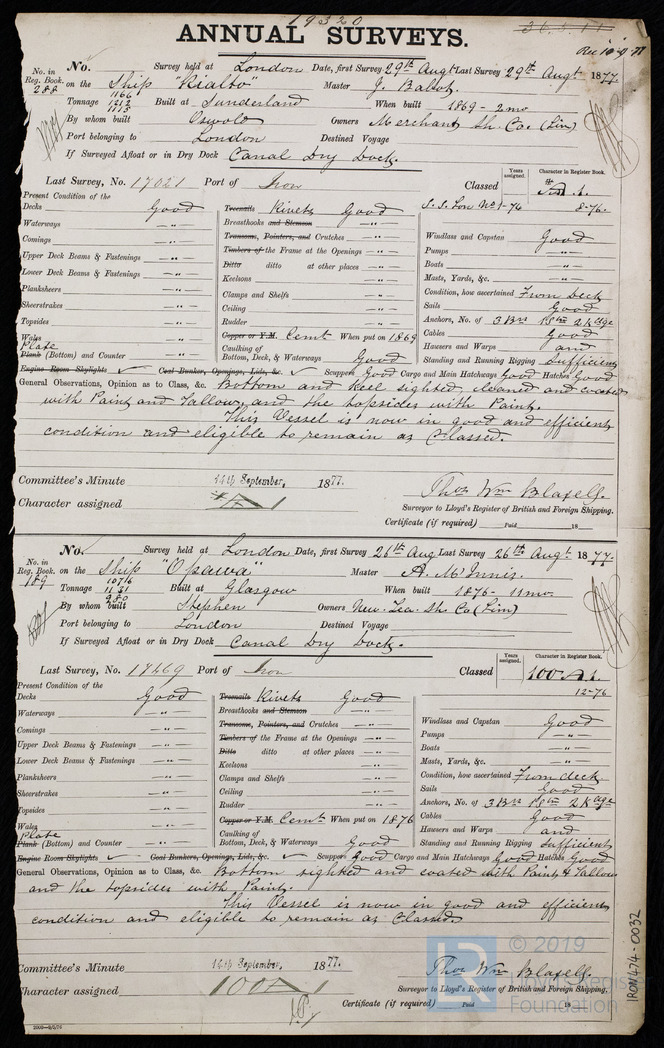 19320
ANNUAL SURVEYS.
Rec 10-9-77
No. in Reg. Book. 288
No. Survey held at London Date, first Survey 29th Augt Last Survey 29th Augt 1877
on the Ship "Rialto" Master J. Babot
Tonnage 1166 1212 1113 Built at Sunderland When built 1869 - 2mo
By whom built Oswold Owners Merchant Sh. Co. (Lim)
Port belonging to London Destined Voyage
If Surveyed Afloat or in Dry Dock Canal Dry Dock.
Last Survey, No. 17021 Port of Iron Classed
Years assigned.
Character in Register Book.
A.1.
S.S. Lon No 1-74 8-76.
Present Condition of the
Decks Good
Waterways -"-
Comings -"-
Upper Deck Beams & Fastenings -"-
Lower Deck Beams & Fastenings -"-
Planksheers -"-
Sheerstrakes -"-
Topsides -"-
Wales -"-
Plate
Plank (Bottom) and Counter -"-
Treenails Rivets Good
Breasthooks and Stemson -"-
Transoms, Pointers, and Crutches -"-
Timbers of the Frame at the Openings -"-
Ditto ditto at other places -"-
Keelsons -"-
Clamps and Shelfs -"-
Ceiling -"-
Rudder -"-
Copper or Y.M. Cemt When put on 1869
Caulking of Bottom, Deck, & Waterways Good
Windlass and Capstan Good
Pumps -"-
Boats -"-
Masts, Yards, &c. -"-
Condition, how ascertained From Deck
Sails Good
Anchors, No. of 3 Brs 1 Stm 2 Kedge
Cables Good
Hawsers and Warps and
Standing and Running Rigging Sufficient
Engine Room Skylights ✓ Coal Bunker, Openings, Lids, &c. ✓ Scuppers Good Cargo and Main Hatchways Good Hatches Good
General Observations, Opinion as to Class, &c. Bottom and Keel sighted, cleaned and coated
with Paint and Tallow, and the topsides with Paint.
This Vessel is now in good and efficient
condition and eligible to remain as Classed.
Committee's Minute 14th September, 1877.
Character assigned A 1
Thos Wm Blaxell.
Surveyor to Lloyd's Register of British and Foreign Shipping.
Certificate (if required) Paid 18
No. in Reg. Book. 189
No. Survey held at London Date, first Survey 26th Aug Last Survey 26th Augt 1877.
on the Ship "Opawa" Master A. McInnis.
Tonnage 1076 1131 980 Built at Glasgow When built 1876 - 11mo.
By whom built Stephen Owners New. Zea. Sh. Co (Lim)
Port belonging to London Destined Voyage
If Surveyed Afloat or in Dry Dock Canal Dry Dock.
Last Survey, No. 18469 Port of Iron Classed
Years assigned.
Character in Register Book.
100 A.1.
12-76
Present Condition of the
Decks Good
Waterways -"-
Comings -"-
Upper Deck Beams & Fastenings -"-
Lower Deck Beams & Fastenings -"-
Planksheers -"-
Sheerstrakes -"-
Topsides -"-
Wales -"-
Plate
Plank (Bottom) and Counter -"-
Treenails Rivets Good
Breasthooks and Stemson -"-
Transoms, Pointers, and Crutches -"-
Timbers of the Frame at the Openings -"-
Ditto ditto at other places -"-
Keelsons -"-
Clamps and Shelfs -"-
Ceiling -"-
Rudder -"-
Copper or Y.M. Cemt When put on 1876
Caulking of Bottom, Deck, & Waterways Good
Windlass and Capstan Good
Pumps -"-
Boats -"-
Masts, Yards, &c. -"-
Condition, how ascertained From deck
Sails Good
Anchors, No. of 3 Brs 1 Stm 2 Kdge
Cables Good
Hawsers and Warps and
Standing and Running Rigging Sufficient
Engine Room Skylights ✓ Coal Bunkers, Openings, Lids, &c. ✓ Scuppers Good Cargo and Main Hatchways Good Hatches Good
General Observations, Opinion as to Class, &c. Bottom sighted and coated with Paint & Tallow
and the topsides with Paint.
This Vessel is now in good and efficient
condition and eligible to remain as Classed.
Committee's Minute 14th September, 1877.
Character assigned 100 A 1
Thos Wm Blaxell.
Surveyor to Lloyd's Register of British and Foreign Shipping.
Certificate (if required) Paid 18
LR © 2019
Lloyd's Register
Foundation
IRON474-0032